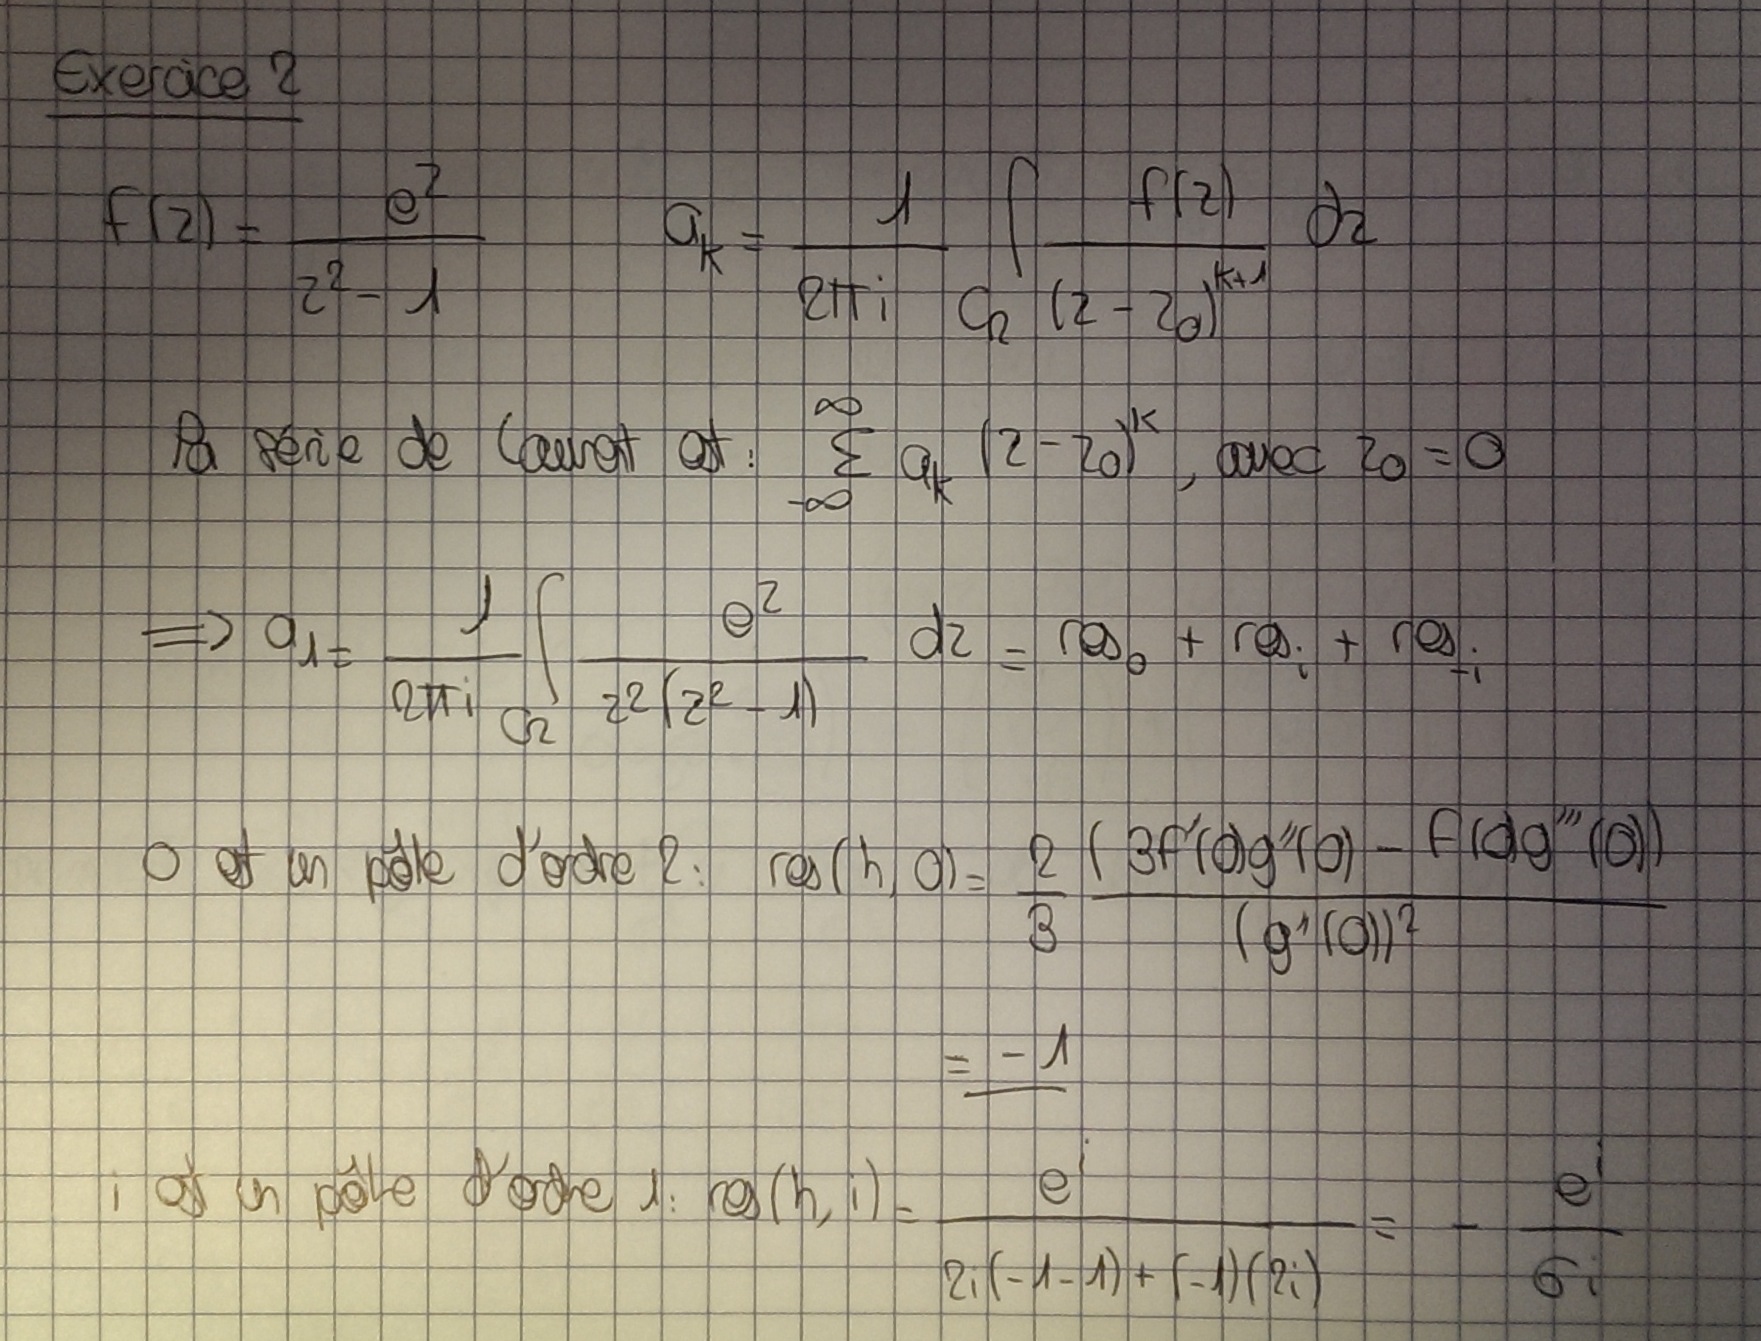 Exercice 2
f(z) = e^z / (z² - 1)    a_k = 1/(2πi) ∫_{C_2} f(z) / (z - z_0)^{k+1} dz
la série de Laurent est : Σ_{-∞}^{∞} a_k (z - z_0)^k, avec z_0 = 0
=> a_1 = 1/(2πi) ∫_{C_2} e^z / (z²(z² - 1)) dz = res_0 + res_i + res_{-i}
0 est un pôle d'ordre 2 : res(h, 0) = 2/3 (3f'(0)g''(0) - f(0)g'''(0)) / (g''(0))²
= -1
i est un pôle d'ordre 1 : res(h, i) = e^i / (2i(-1-1) + (-1)(2i)) = - e^i / 6i